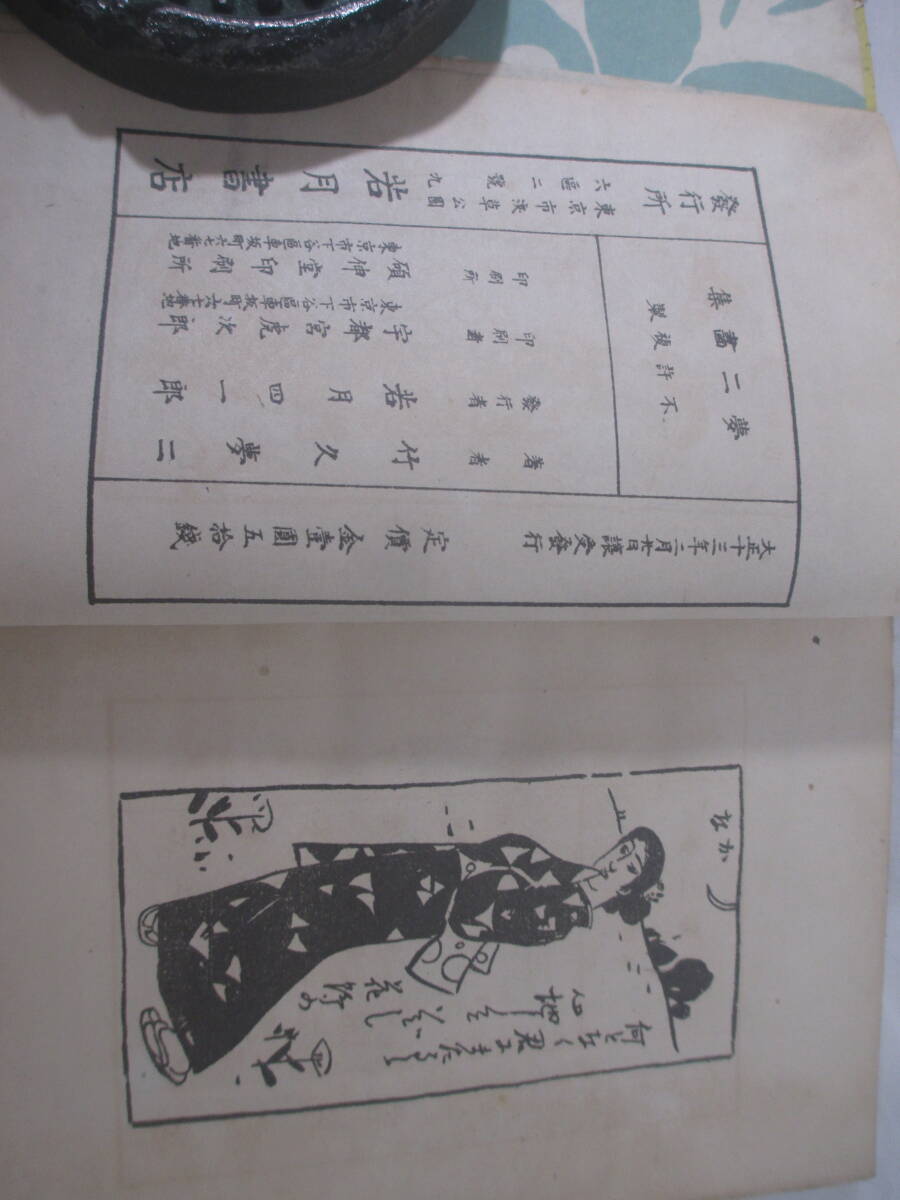 大正十三年二月廿日譲受發行
定價金壹圓五拾錢
夢二畵集
不許複製
著者
竹久夢二
發行者
岩月四一郎
印刷者
東京市下谷區車坂町六七番地
宇都宮虎次郎
印刷所
東京市下谷區車坂町六七番地
願伸堂印刷所
發行所
東京市淺草公園
六區二號九
岩月書店
なか
何となく君に
心地して
花